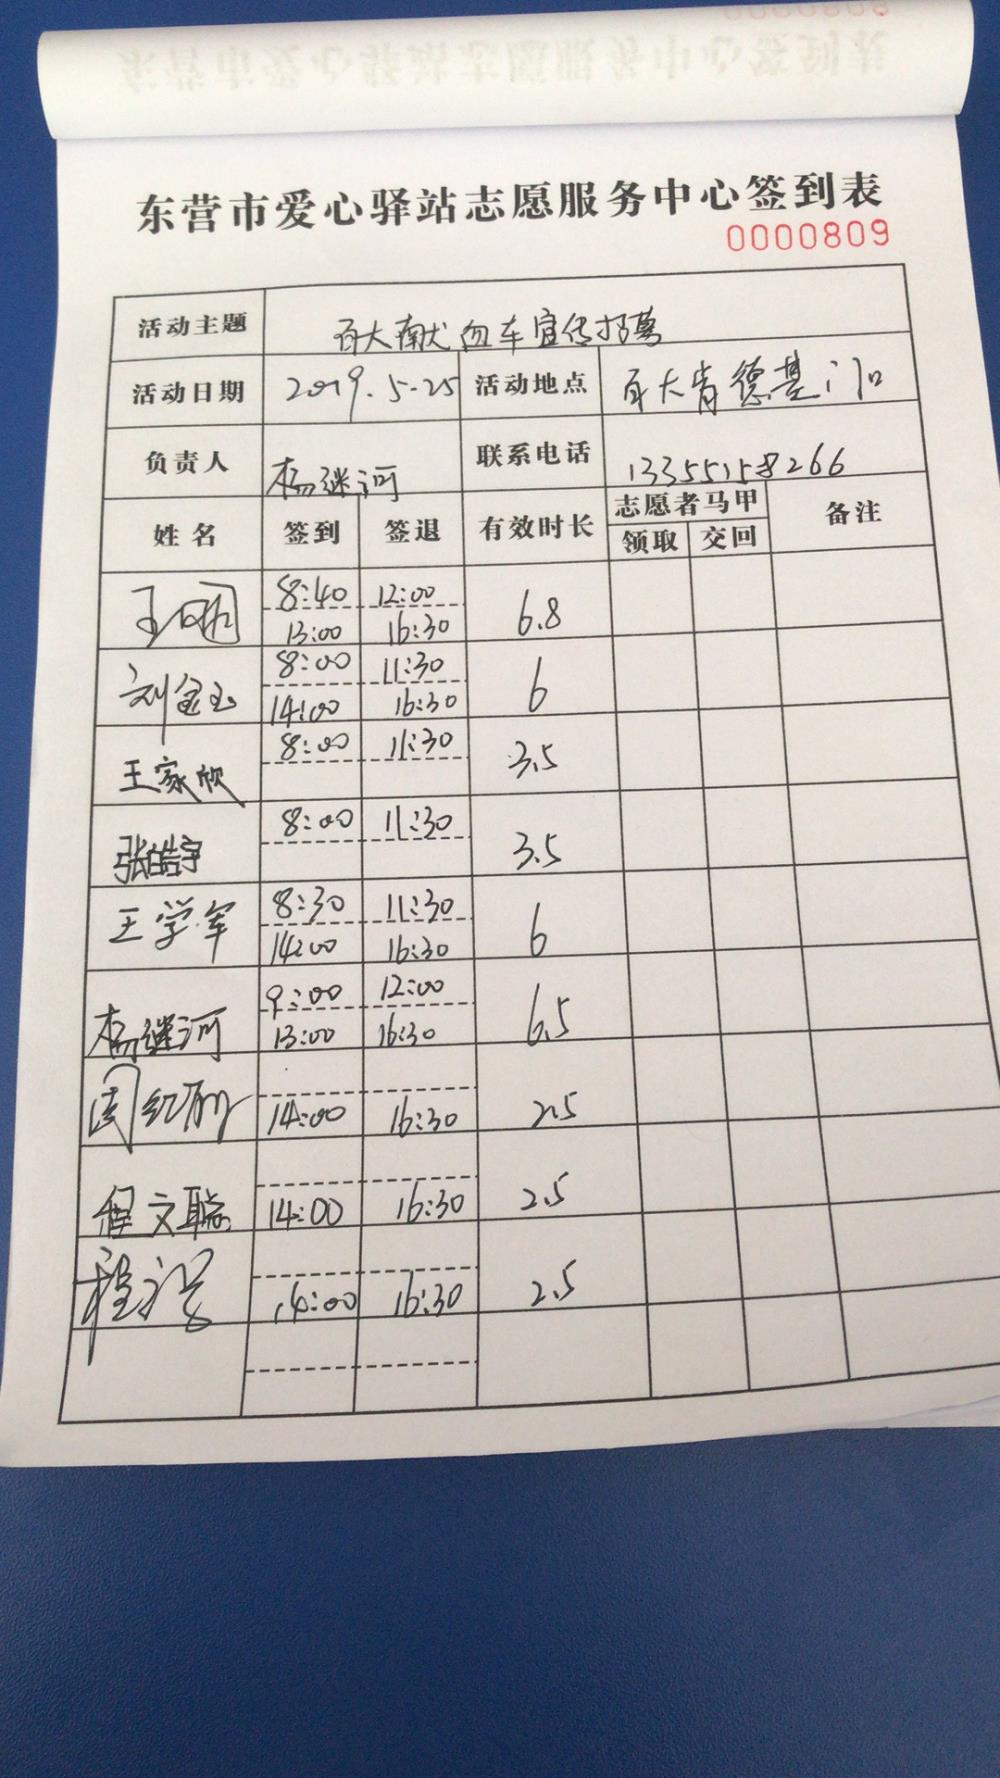 东营市爱心驿站志愿服务中心签到表
0000809
活动主题 百大献血车宣传招募
活动日期 2019.5.25 活动地点 百大肯德基门口
负责人 杨继河 联系电话 13355158266
姓名 签到 签退 有效时长 志愿者马甲 备注
领取 交回
8:40 12:00 6.8
13:00 16:30
刘金玉 8:00 11:30 6
14:00 16:30
王家欣 8:00 11:30 3.5
张皓宇 8:00 11:30 3.5
王学军 8:30 11:30 6
14:00 16:30
杨继河 9:00 12:00 6.5
13:00 16:30
14:00 16:30 2.5
程文聪 14:00 16:30 2.5
14:00 16:30 2.5